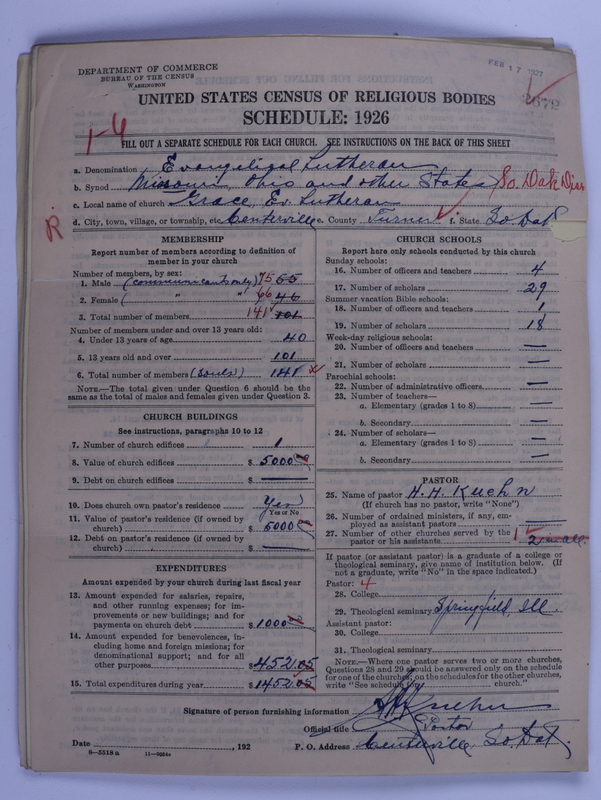 DEPARTMENT OF COMMERCE
BUREAU OF THE CENSUS
WASHINGTON
FEB 17 1927
UNITED STATES CENSUS OF RELIGIOUS BODIES
SCHEDULE: 1926
1-6
FILL OUT A SEPARATE SCHEDULE FOR EACH CHURCH. SEE INSTRUCTIONS ON THE BACK OF THIS SHEET
a. Denomination Evangelical Lutheran
b. Synod Missouri, Ohio and other States So. Dak Dist
c. Local name of church Grace, Ev. Lutheran
d. City, town, village, or township, etc Centerville e. County Turner f. State So. Dak
R
MEMBERSHIP
Report number of members according to definition of
member in your church
Number of members, by sex:
1. Male (communicants only) 75 55
2. Female ( " " ) 66 46
3. Total number of members 141 101
Number of members under and over 13 years old:
4. Under 13 years of age 40
5. 13 years old and over 101
6. Total number of members (souls) 141
NOTE.—The total given under Question 6 should be the
same as the total of males and females given under Question 3.
CHURCH BUILDINGS
See instructions, paragraphs 10 to 12
7. Number of church edifices 1
8. Value of church edifices $ 5000
9. Debt on church edifices $ —
10. Does church own pastor's residence Yes
Yes or No
11. Value of pastor's residence (if owned by
church) $ 5000
12. Debt on pastor's residence (if owned by
church) $ —
EXPENDITURES
Amount expended by your church during last fiscal year
13. Amount expended for salaries, repairs,
and other running expenses; for im-
provements or new buildings; and for
payments on church debt $ 1000
14. Amount expended for benevolences, in-
cluding home and foreign missions; for
denominational support; and for all
other purposes $ 452.05
15. Total expenditures during year $ 1452.05
CHURCH SCHOOLS
Report here only schools conducted by this church
Sunday schools:
16. Number of officers and teachers 4
17. Number of scholars 29
Summer vacation Bible schools:
18. Number of officers and teachers 1
19. Number of scholars 18
Week-day religious schools:
20. Number of officers and teachers —
21. Number of scholars —
Parochial schools:
22. Number of administrative officers —
23. Number of teachers—
a. Elementary (grades 1 to 8) —
b. Secondary —
24. Number of scholars—
a. Elementary (grades 1 to 8) —
b. Secondary —
PASTOR
25. Name of pastor H. H. Kuehn
(If church has no pastor, write "None")
26. Number of ordained ministers, if any, em-
ployed as assistant pastors —
27. Number of other churches served by the
pastor or his assistants 1 2 in all
If pastor (or assistant pastor) is a graduate of a college or
theological seminary, give name of institution below. (If
not a graduate, write "No" in the space indicated.)
Pastor: 4
28. College
29. Theological seminary Springfield, Ill.
Assistant pastor:
30. College
31. Theological seminary
NOTE.—Where one pastor serves two or more churches,
Questions 28 and 29 should be answered only on the schedule
for one of the churches; on the schedules for the other churches,
write "See schedule for church."
Signature of person furnishing information H. H. Kuehn
Official title Pastor
Date , 192 P. O. Address Centerville So. Dak.
8-5318 a